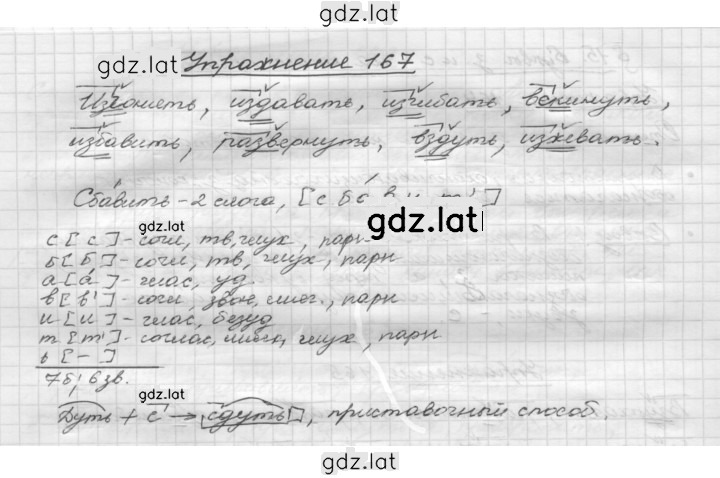 gdz.lat
gdz.lat Упражнение 167
Изгонять, издавать, изгибать, вскинуть,
избавить, развернуть, вздуть, изживать.
Сбавить - 2 слога, [с б
gdz.lat
с [с] - согл, тв, глух, парн
б [б] - согл, тв, глух, парн
а [а́] - глас, уд.
в [в'] - согл, звон, мягк., парн
и [и] - глас, безуд
т [т'] - соглас, мягк, глух, парн
ь [-]
7б, 6зв. gdz.lat
Дуть + с → сдуть, приставочный способ.
gdz.lat